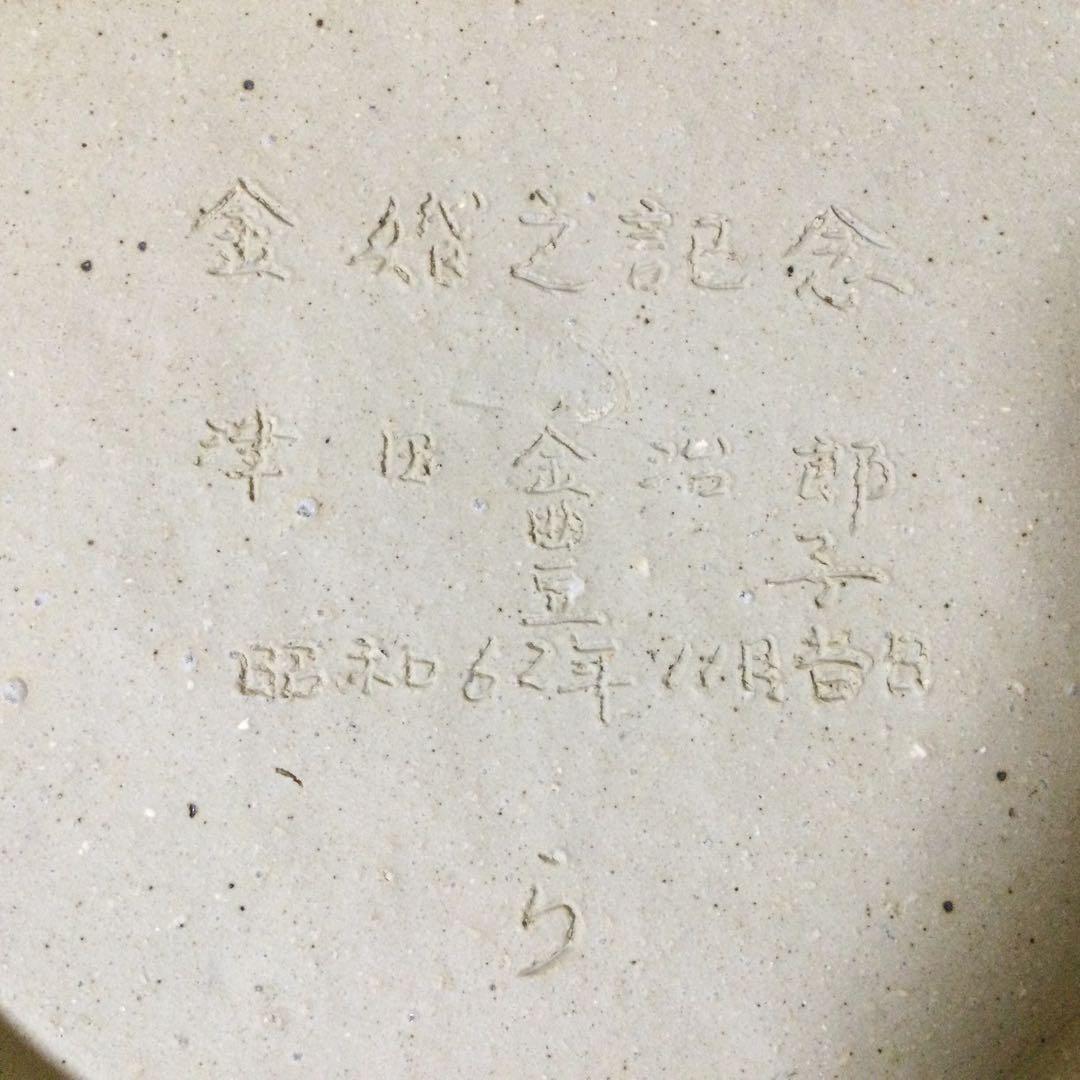 金婚之記念
津田金治郎
豊子
昭和62年月日